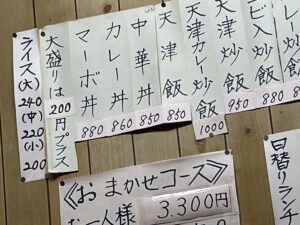 ビ入炒飯 880
レー炒飯 880
天津炒飯 950
天津カレー炒飯 1000
天津飯 850
中華丼 850
カレー丼 860
マーボ丼 880
大盛りは200円プラス
ライス(大)240
(中)220
(小)200
日替りランチ
《おまかせコース》
お一人様 3.300円